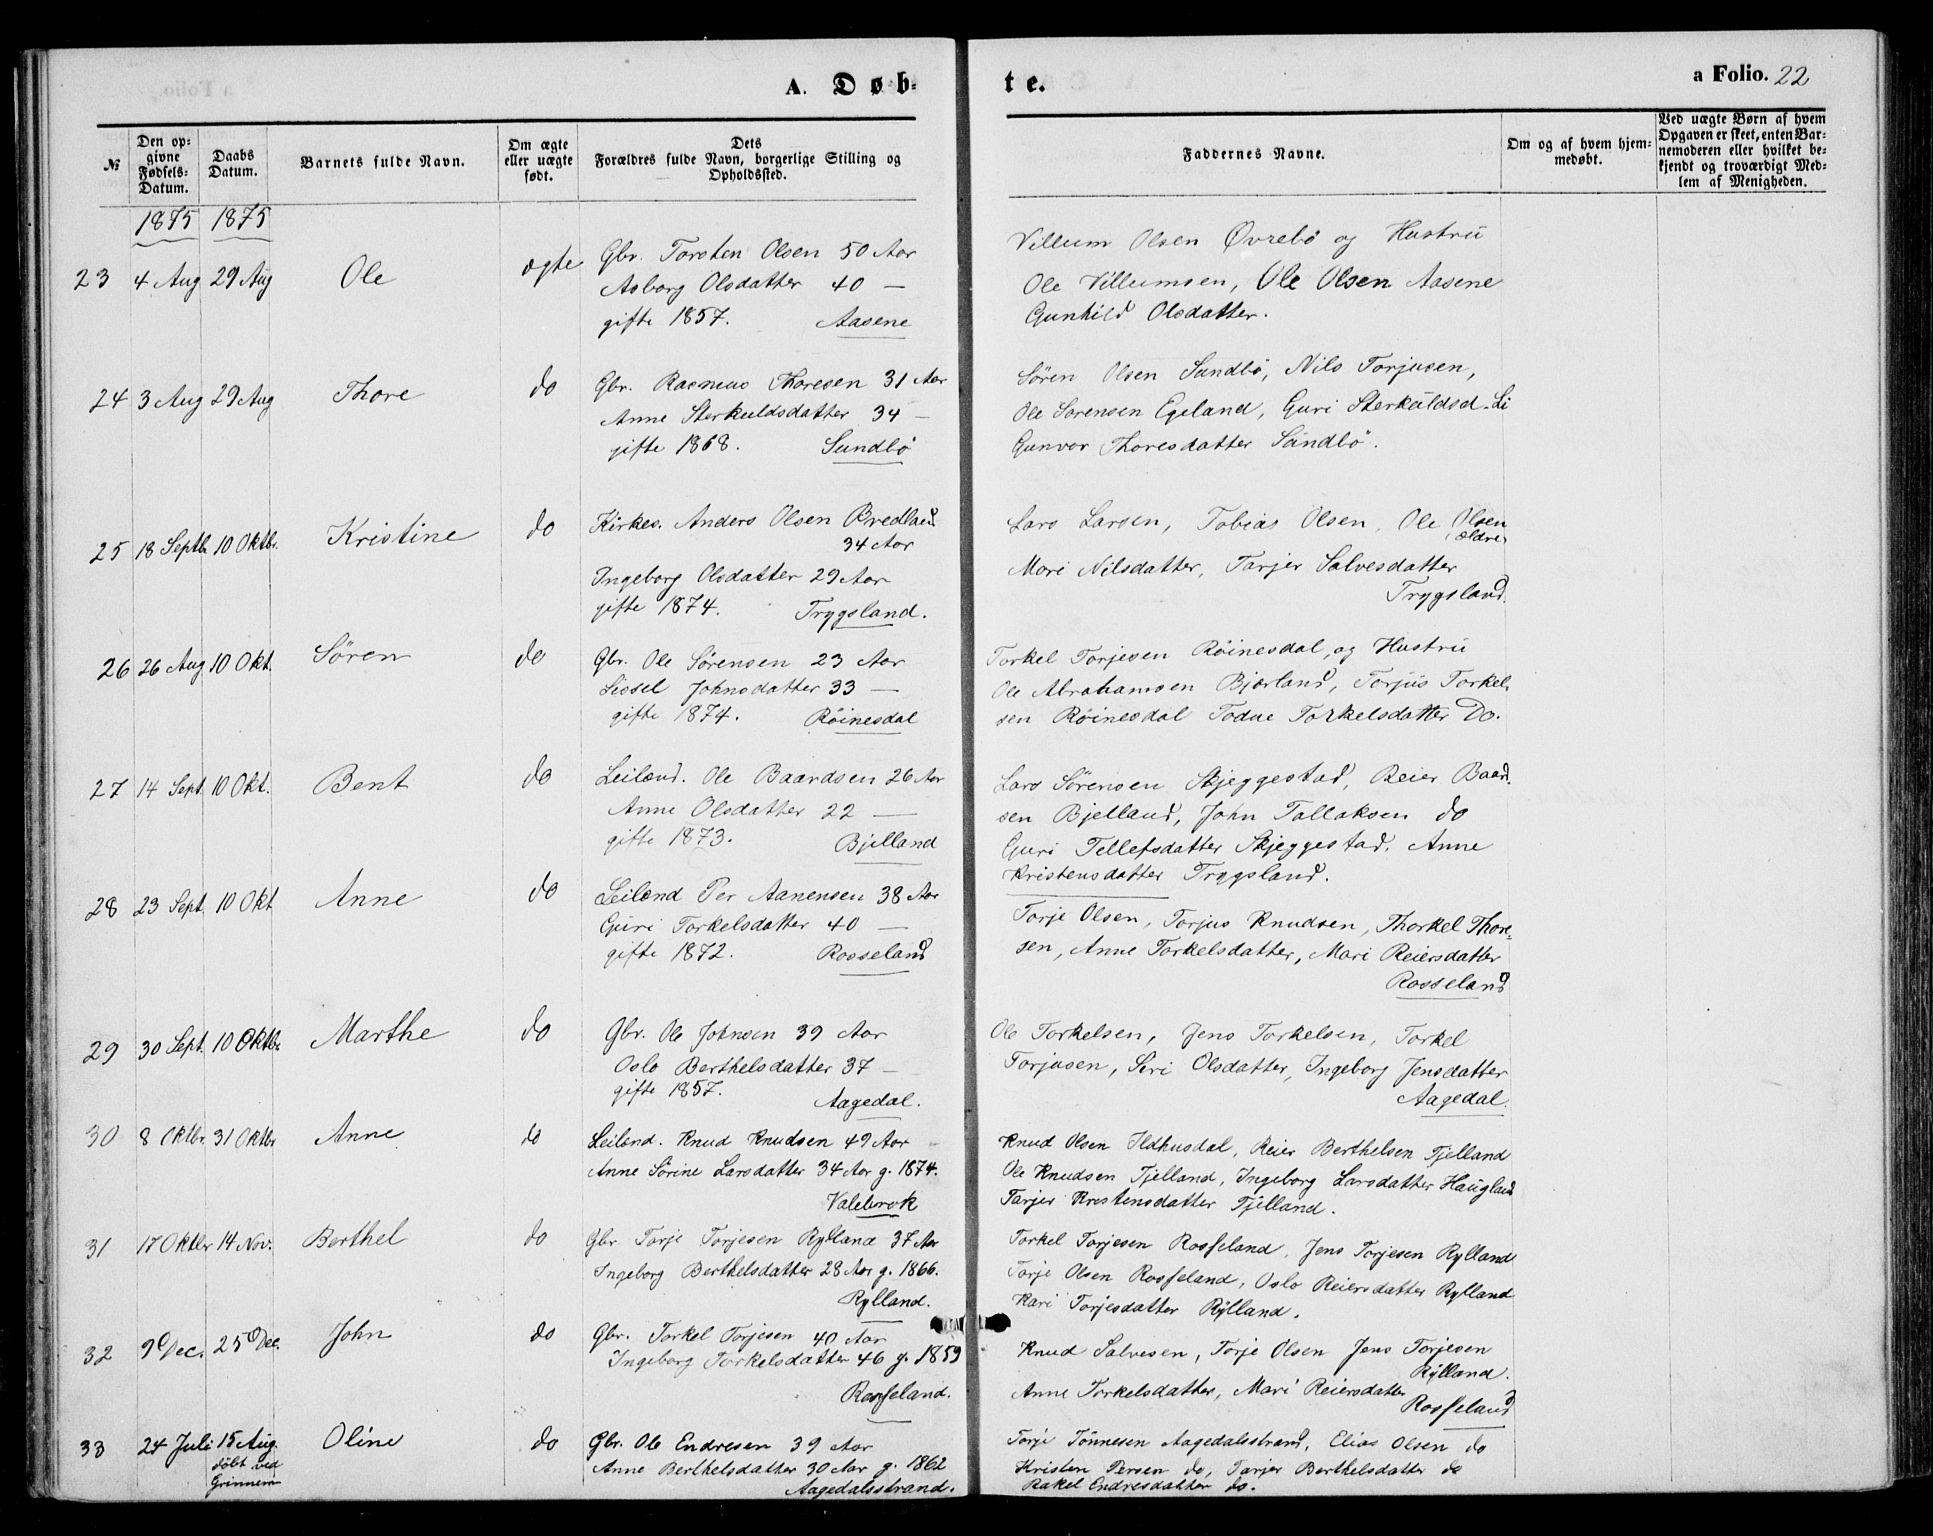 A. Døb-
te.
a Folio. 22
№
Den op-
givne
Fødsels-
Datum.
Daabs
Datum.
Barnets fulde Navn.
Om ægte
eller uægte
født.
Dets
Forældres fulde Navn, borgerlige Stilling og
Opholdssted.
Faddernes Navne.
Om og af hvem hjem-
medøbt.
Ved uægte Børn af hvem
Opgaven er skeet, enten Bar-
nemoderen eller hvilket be-
kjendt og troværdigt Med-
lem af Menigheden.
1875 1875
23 4 Aug 29 Aug Ole ægte
Gbr. Torsten Olsen 50 Aar
Asborg Olsdatter 40 —
gifte 1857. Aasene
Villum Olsen Øvrebö og Hustru
Ole Villumsen, Ole Olsen Aasene
Gunhild Olsdatter.
24 3 Aug 29 Aug Thore do
Gbr. Rasmus Thoresen 31 Aar
Anne Sterkuldsdatter 34 —
gifte 1868. Sundbö
Sören Olsen Sundbö, Nils Torjusen,
Ole Sorensen Egeland, Guri Sterkuldsd. Li
Gunvor Thoresdatter Sundbö.
25 18 Septb. 10 Oktbr. Kristine do
Kirkes. Anders Olsen Bredland
34 Aar
Ingeborg Olsdatter 29 Aar
gifte 1874. Trygsland.
Lars Larsen, Tobias Olsen, Ole Olsen
ældre,
Mari Nilsdatter, Tarjer Salvesdatter
Trygsland.
26 26 Aug 10 Okt. Sören do
Gbr. Ole Sörensen 23 Aar
Sissel Johnsdatter 33 —
gifte 1874. Röinesdal
Torkel Torjesen Röinesdal, og Hustru
Ole Abrahamsen Bjærland, Torjus Torkel-
sen Röinesdal Todne Torkelsdatter Do.
27 14 Sept. 10 Okt. Bent do
Leilænd. Ole Baardsen 26 Aar
Anne Olsdatter 22 —
gifte 1873. Bjelland
Lars Sörensen Skjeggestad, Reier Baard-
sen Bjelland, John Tallaksen do
Guri Tellefsdatter Skjeggestad, Anne
Kristensdatter Trygsland.
28 23 Sept. 10 Okt Anne do
Leilænd Per Aanensen 38 Aar
Guri Torkelsdatter 40 —
gifte 1872. Rosseland
Torje Olsen, Torjus Knudsen, Thorkel Thore-
sen, Anne Torkelsdatter, Mari Reiersdatter
Rosseland
29 30 Sept. 10 Oktbr Marthe do
Gbr. Ole Johnsen 39 Aar
Oslo Berthelsdatter 37 —
gifte 1857. Aagedal.
Ole Torkelsen, Jens Torkelsen, Torkel
Torjusen, Seri Olsdatter, Ingeborg Jensdatter
Aagedal.
30 8 Oktbr. 31 Oktbr Anne do
Leilend. Knud Knudsen 49 Aar
Anne Sörine Larsdatter 34 Aar g. 1874.
Valebrok
Knud Olsen Ildhusdal, Reier Berthelsen Tjelland
Ole Knudsen Tjelland, Ingeborg Larsdatter Haugland
Tarjer Kristensdatter Tjelland.
31 17 Oktbr 14 Nov. Berthel do
Gbr. Torje Torjesen Rylland 37 Aar
Ingeborg Berthelsdatter 28 Aar g. 1866.
Rylland.
Torkel Torjesen Rosseland, Jens Torjesen Rylland
Torje Olsen Rosseland, Oslo Reiersdatter Rylland
Kari Torjesdatter Rylland.
32 9 Dec. 25 Dec. John do
Gbr. Torkel Torjesen 40 Aar
Ingeborg Torkelsdatter 46 g. 1859
Rosseland.
Knud Salvesen, Torje Olsen Jens Torjesen
Rylland.
Anne Torkelsdatter, Mari Reiersdatter
Rosseland
33 24 Juli 15 Aug. Oline do
döbt ved
Grinnem
Gbr. Ole Endresen 39 Aar
Anne Berthelsdatter 30 Aar g. 1862
Aagedalsstrand.
Torje Tönnesen Aagedalsstrand, Elias Olsen do
Kristen Persen do, Tarjer Berthelsdatter do
Rakel Endresdatter do.